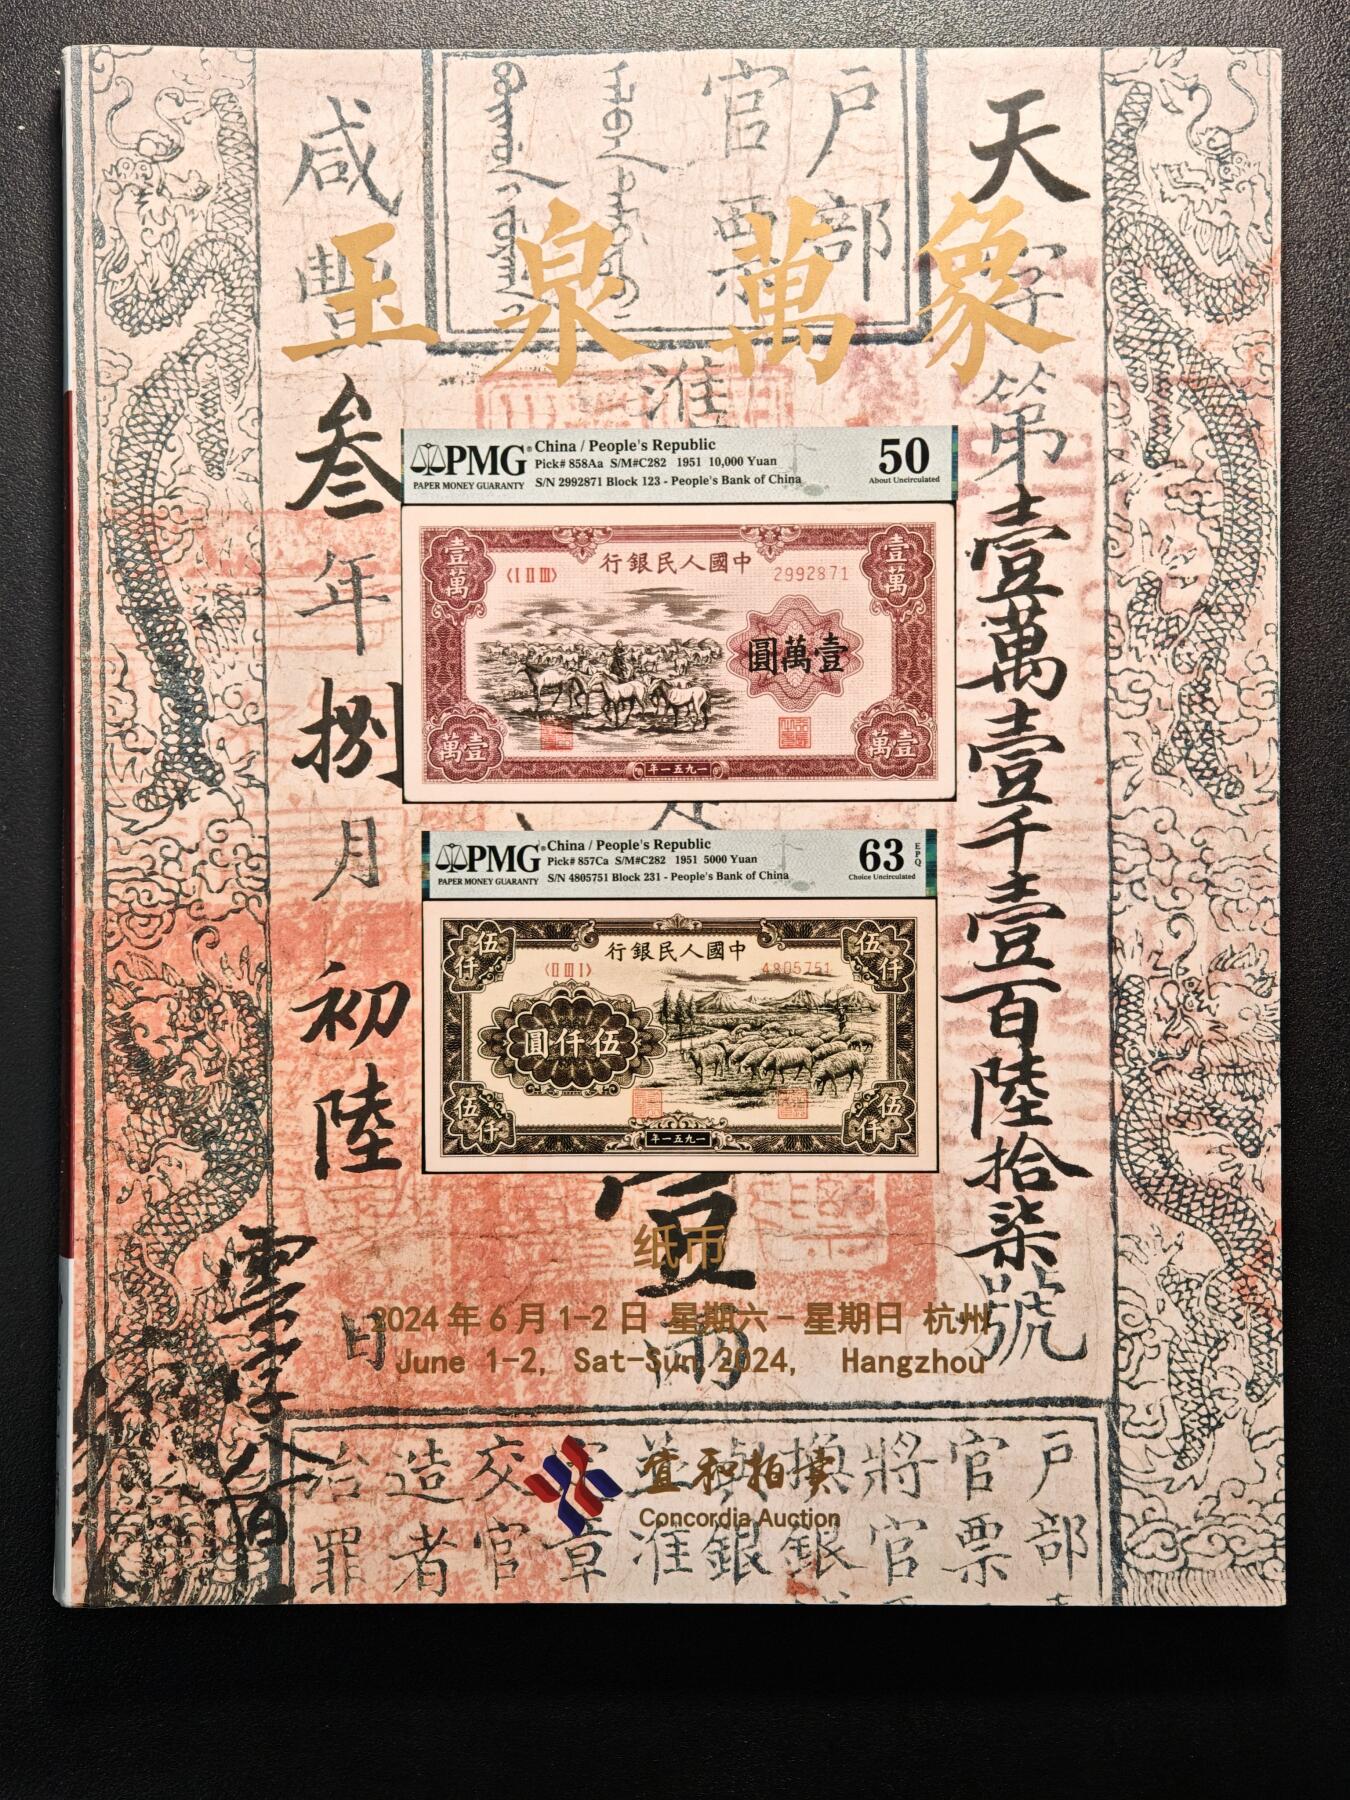 玉泉萬象
天字第壹萬壹千壹百陸拾柒號
戶部
官票
咸豐叁年捌月初陸日
准
PMG
PAPER MONEY GUARANTY
China / People's Republic
Pick# 858Aa S/M#C282 1951 10,000 Yuan
S/N 2992871 Block 123 - People's Bank of China
50
About Uncirculated
行銀民人國中
〈I II III〉
2992871
壹萬
壹萬
圓萬壹
萬壹
萬壹
年一五九一
PMG
PAPER MONEY GUARANTY
China / People's Republic
Pick# 857Ca S/M#C282 1951 5000 Yuan
S/N 4805751 Block 231 - People's Bank of China
63
EPQ
Choice Uncirculated
行銀民人國中
〈II III I〉
4805751
伍仟
伍仟
圓仟伍
伍仟
伍仟
年一五九一
壹
纸币
2024年6月1-2日 星期六-星期日 杭州
June 1-2, Sat-Sun 2024, Hangzhou
宣和拍卖
Concordia Auction
戶部
官票
將官
換銀
銀
准
章
交官
造者
治罪